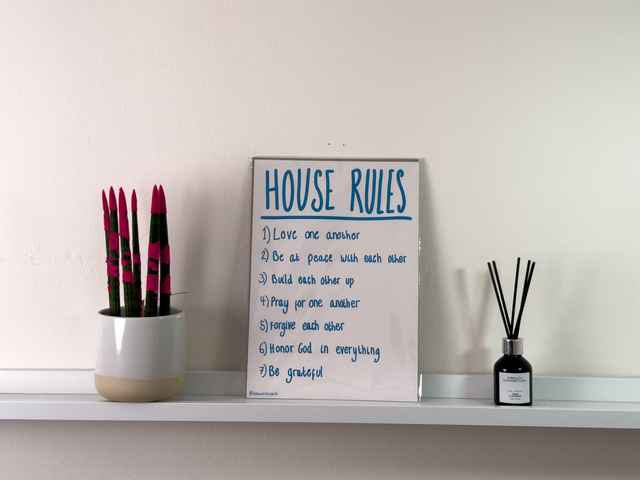 HOUSE RULES
1) Love one another
2) Be at peace with each other
3) Build each other up
4) Pray for one another
5) Forgive each other
6) Honor God in everything
7) Be grateful